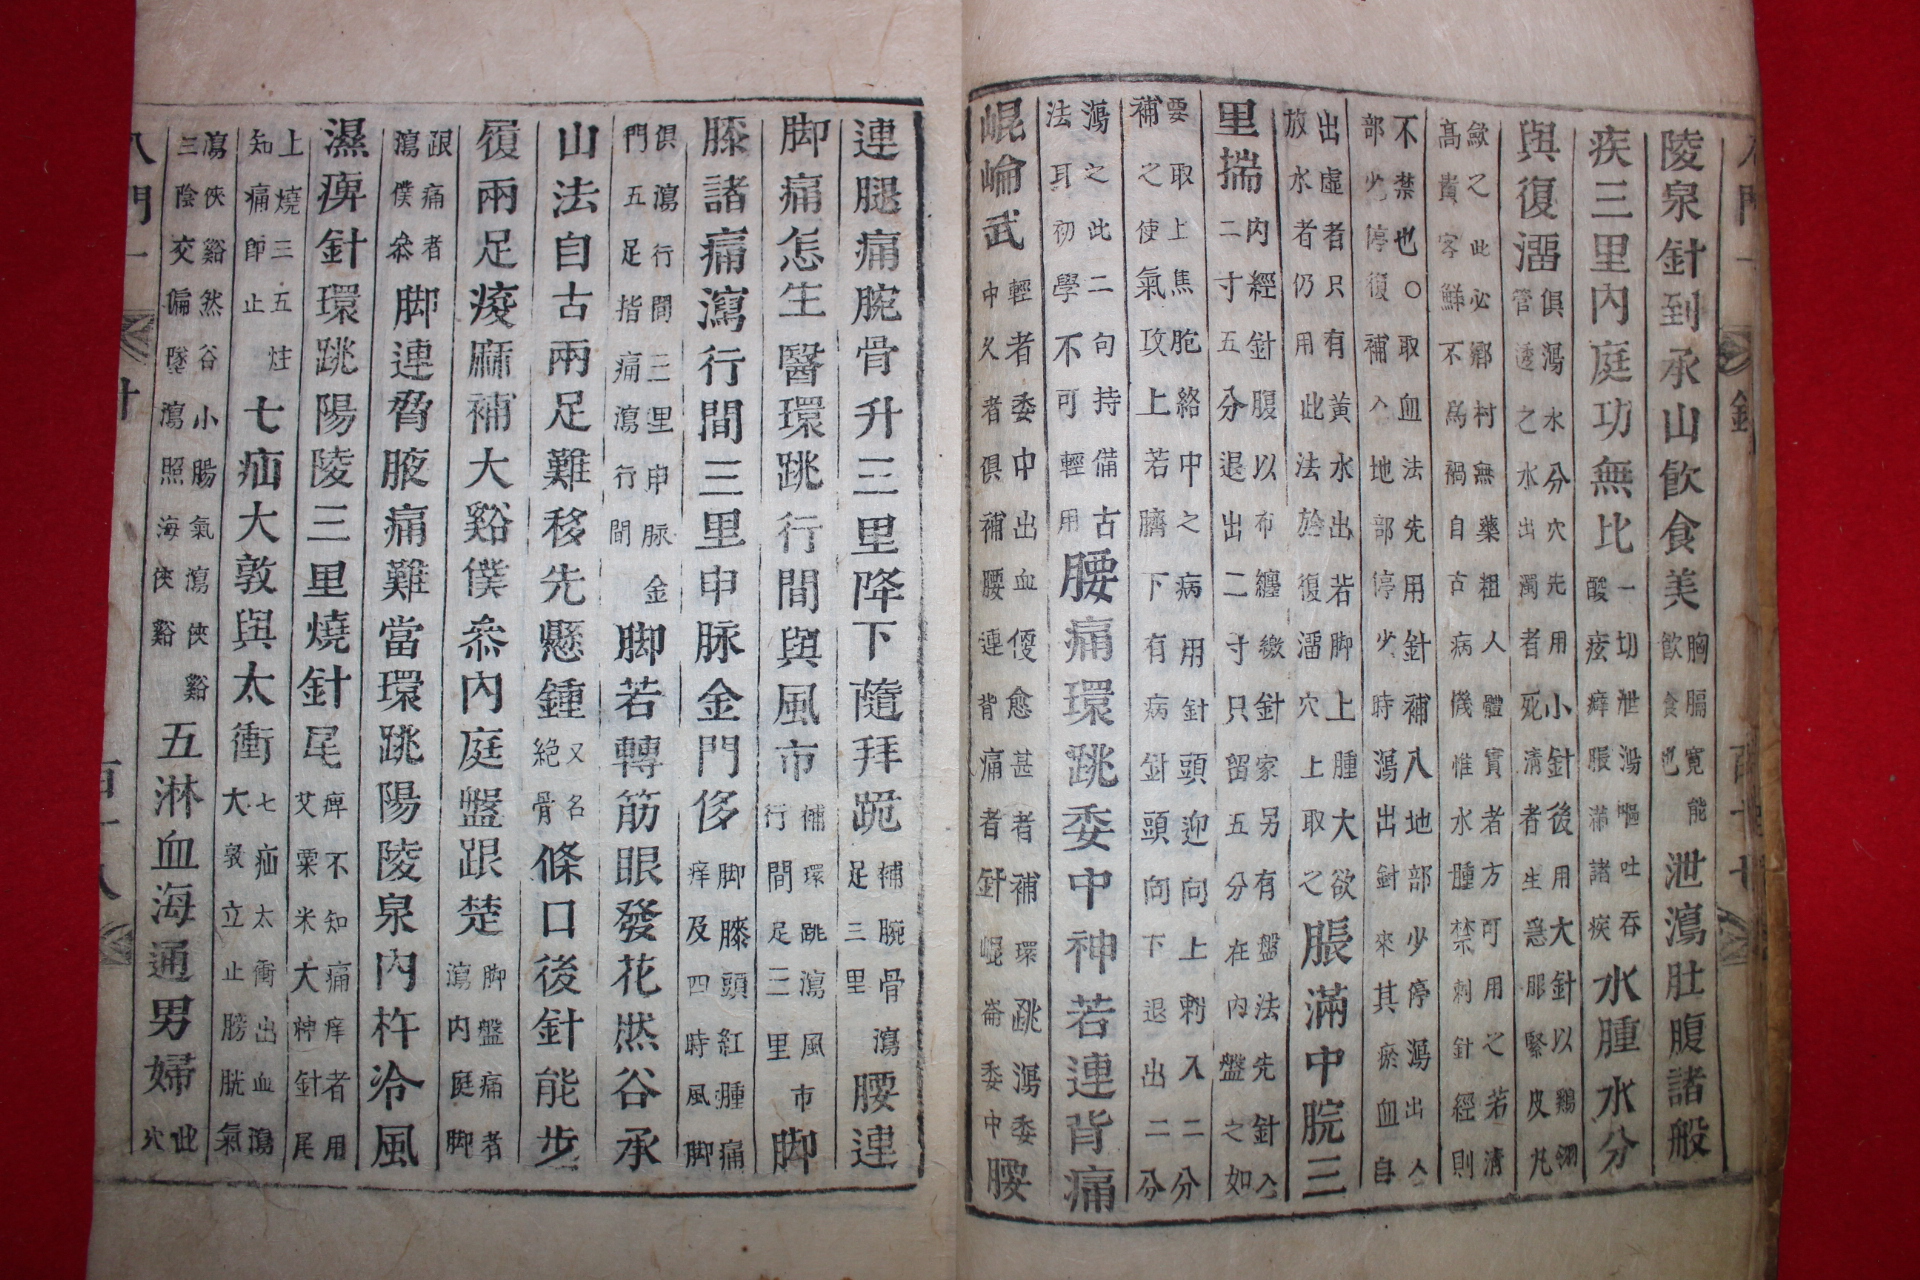 陵泉針到承山飮食美胸膈寬能飮食也泄瀉肚腹諸般
疾三里內庭功無比一切泄瀉嘔吐吞酸痃癖脹滿諸疾水腫水分
與復溜俱瀉水分穴先用小針後用大針以鷄翎管透之水出濁者死淸者生急服緊皮丸
歛之此必鄕村無藥粗人體實者方可用之若淸高貴客鮮不爲禍自古病機惟水腫禁刺針經則
不禁也○取血法先用針補入地部少停瀉出人部少停復補入地部停少時瀉出針來其瘀血自
出虛者只有黃水出若脚上腫大欲放水者仍用此法於復溜穴上取之脹滿中脘三
里揣內經針腹以布纏繳針家另有盤法先針入二寸五分退出二寸只留五分在內盤之如
要取上焦胞絡中之病用針頭迎向上刺入二分補之使氣攻上若臍下有病針頭向下退出二分
瀉之此二句持備古法耳初學不可輕用腰痛環跳委中神若連背痛
崐崘武輕者委中出血便愈甚者補環跳瀉委中久者俱補腰連背痛者針崐崙委中腰
連腿痛腕骨升三里降下隨拜跪補腕骨瀉足三里腰連
脚痛怎生醫環跳行間與風市補環跳瀉風市行間足三里脚
膝諸痛瀉行間三里申脉金門侈脚膝頭紅腫痛痒及四時風脚
俱瀉行間三里申脉金門五足指痛瀉行間脚若轉筋眼發花然谷承
山法自古兩足難移先懸鍾又名絕骨條口後針能步
履兩足痠麻補大谿僕叅內庭盤跟楚脚盤痛者瀉內庭脚
跟痛者瀉僕叅脚連脅腋痛難當環跳陽陵泉內杵冷風
濕痺針環跳陽陵三里燒針尾痺不知痛痒者用艾粟米大於針尾
上燒三五炷知痛卽止七疝大敦與太衝七疝太衝出血瀉大敦立止膀胱氣
瀉俠谿然谷小腸氣瀉俠谿三陰交偏墜瀉照海俠谿五淋血海通男婦此穴